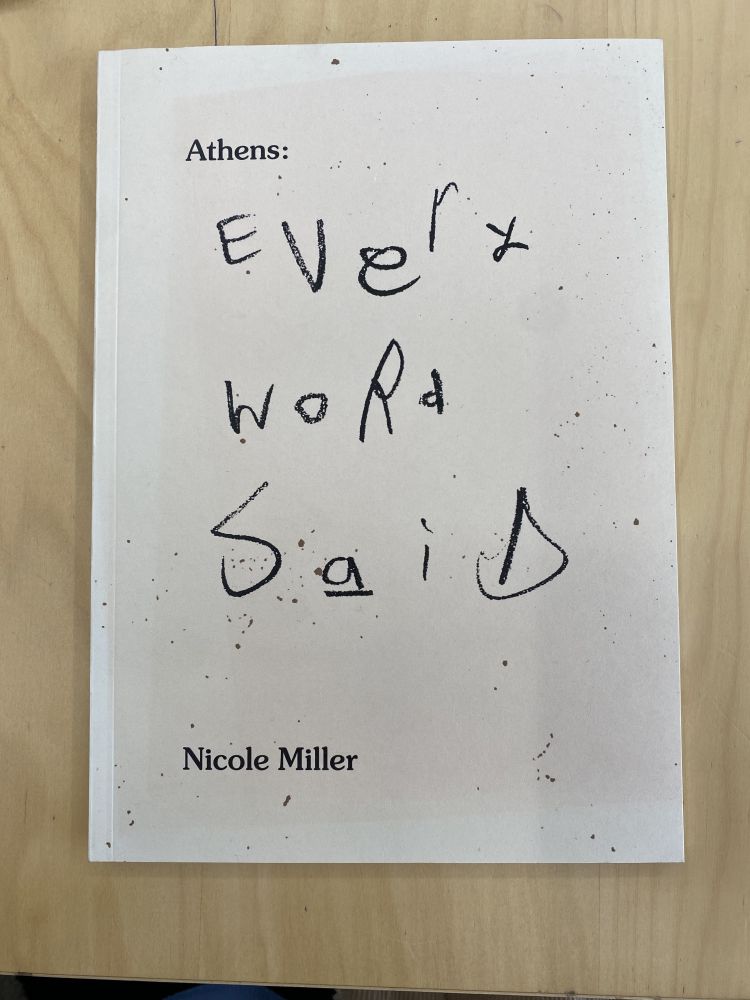 Athens:
EVery
WoRd
SaiD
Nicole Miller